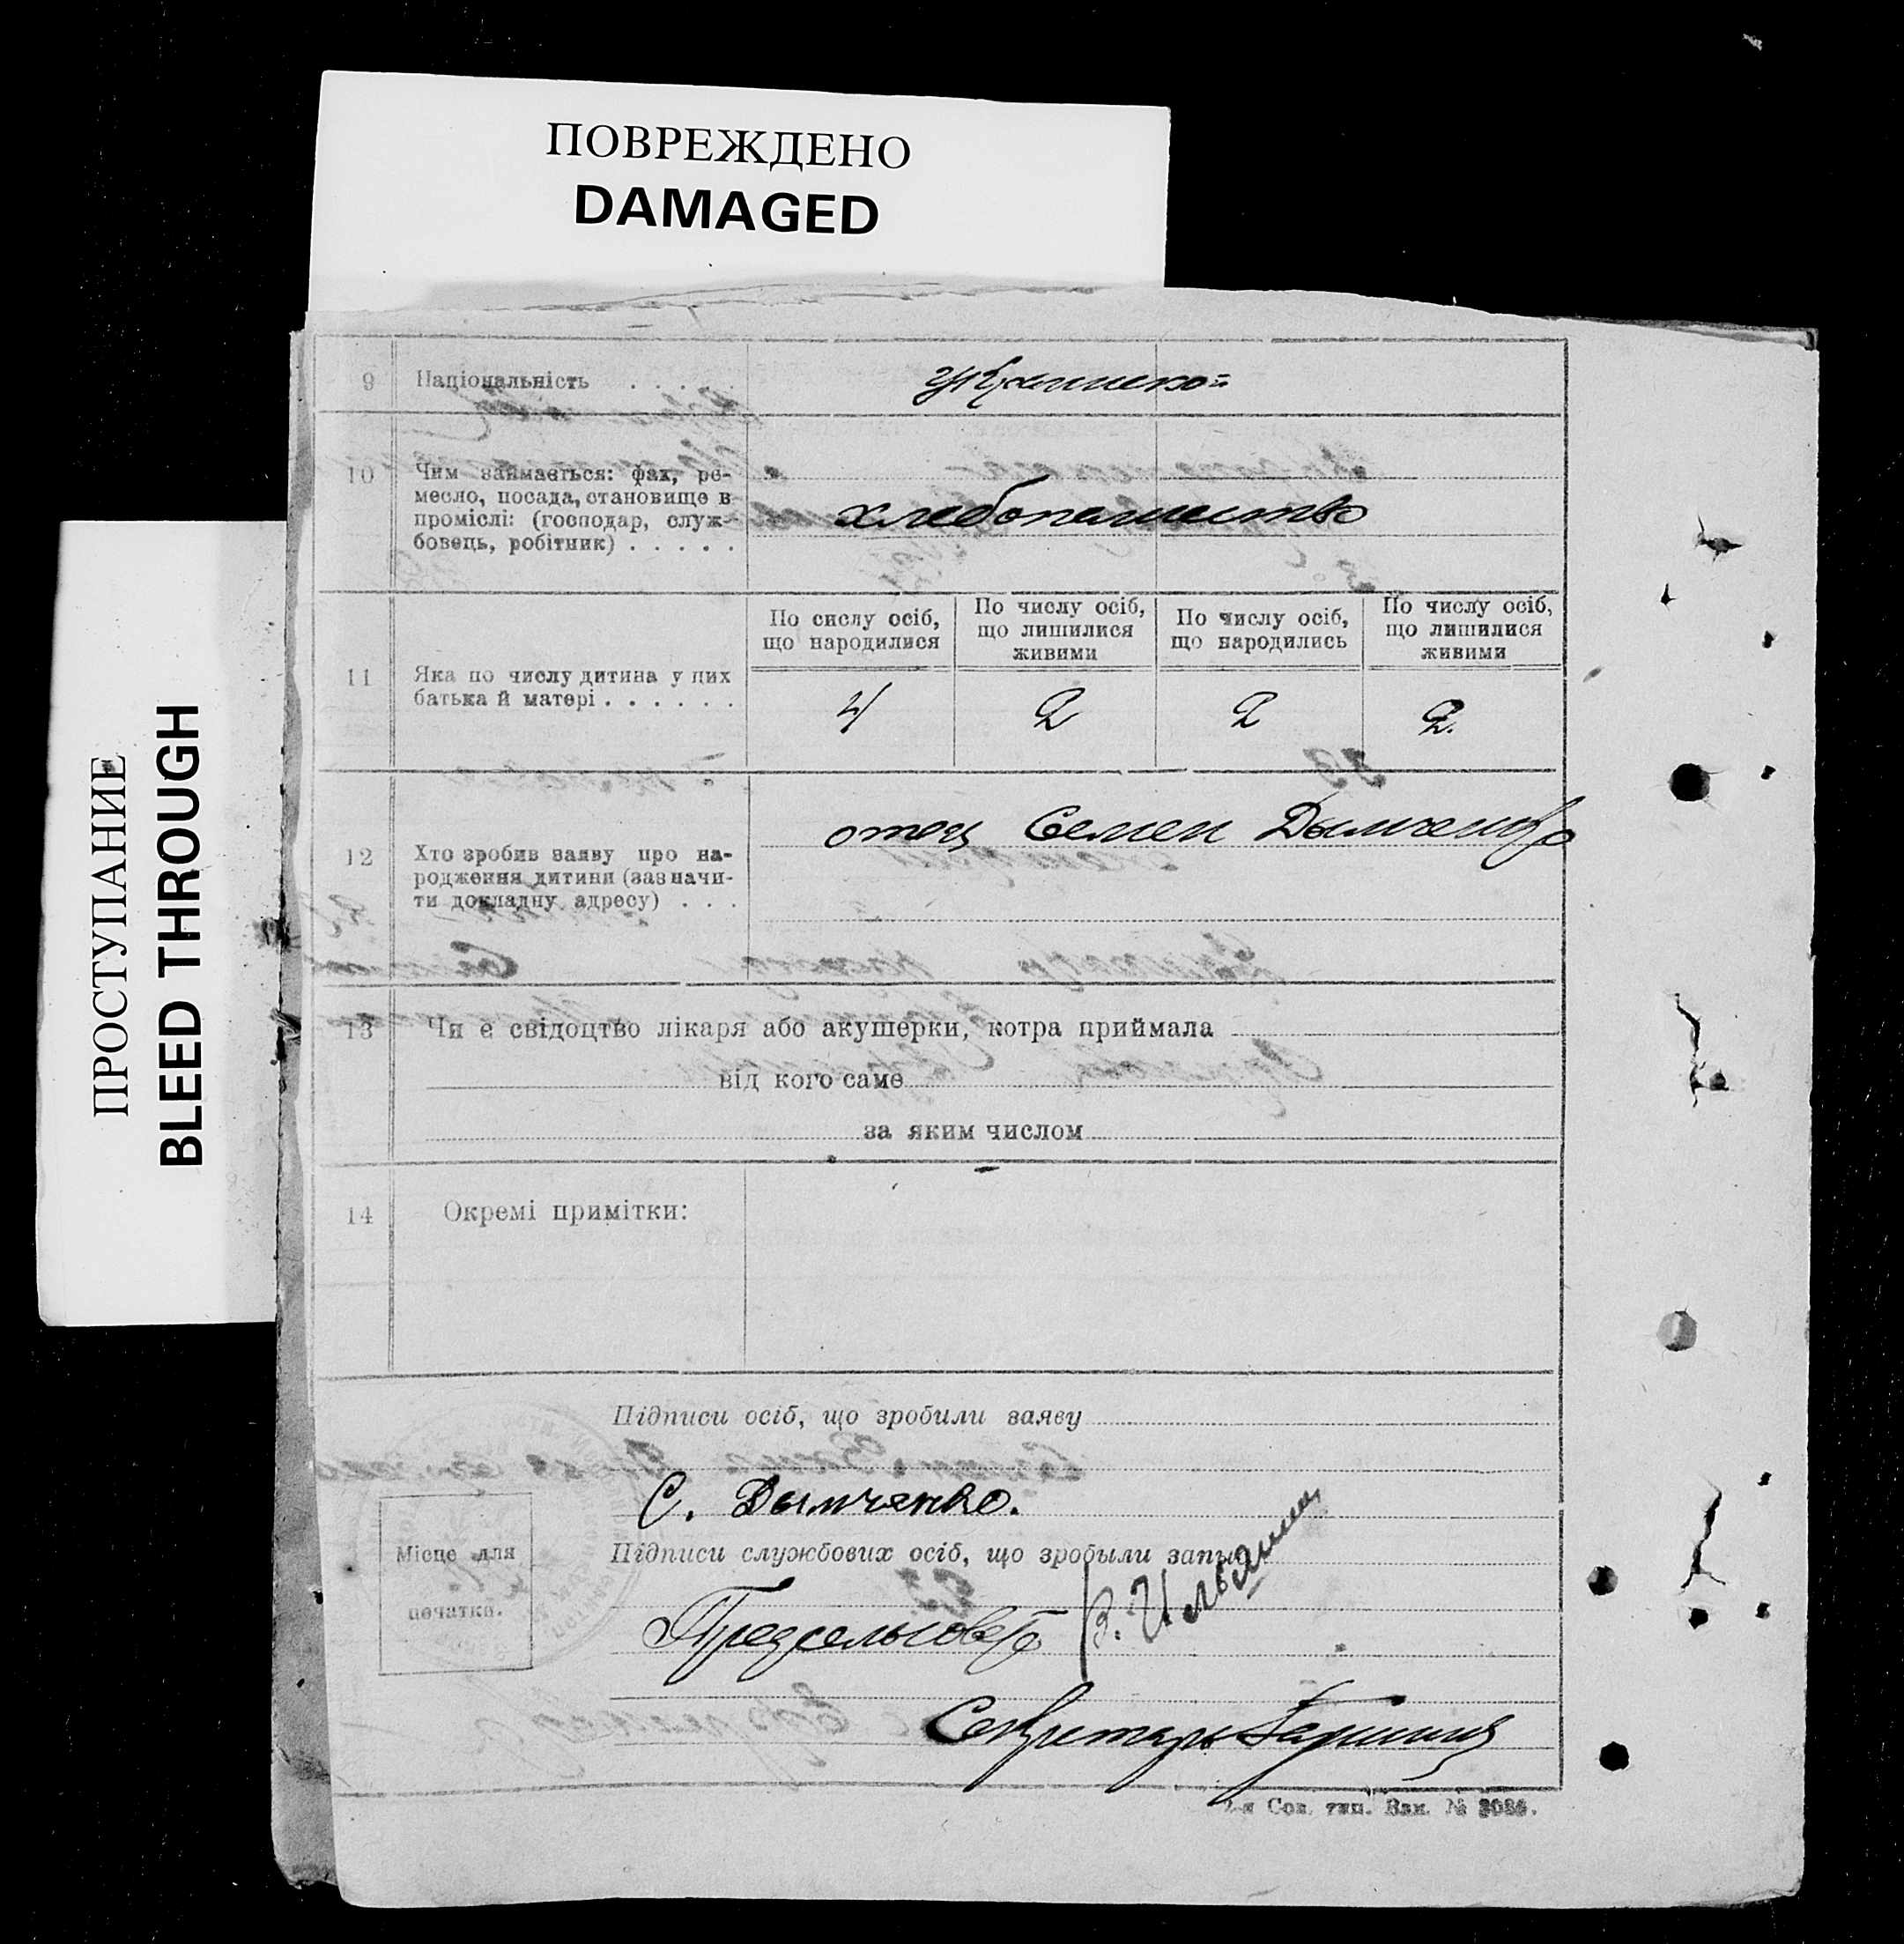 ПОВРЕЖДЕНО
DAMAGED
ПРОСТУПАНИЕ
BLEED THROUGH
9 Національність . . . . .
10 Чим займається: фах, ре-
месло, посада, становище в
проміслі: (господар, служ-
бовець, робітник) . . . . .
хлебопашество
11 Яка по числу дитина у цих
батька й матері . . . . . .
По сислу осіб,
що народилися
По числу осіб,
що лишилися
живими
По числу осіб,
що народились
По числу осіб,
що лишилися
живими
4 2 2 2.
12 Хто зробив заяву про на-
родження дитини (зазначи-
ти докладну адресу) . . .
отец Семен Дымченко
13 Чи є свідоцтво лікаря або акушерки, котра приймала
від кого саме
за яким числом
14 Окремі примітки:
Підписи осіб, що зробили заяву
С. Дымченко.
Місце для
печатки.
Підписи службових осіб, що зробыли запис
Предсельсовета
Секретарь
2-я Сов. тип. Зак. №